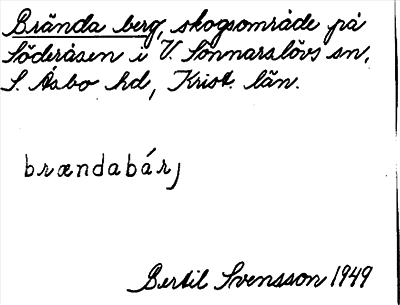 Brända berg, skogsområde på
Söderåsen i V. Sönnarslövs sn,
S. Åsbo hd, Krist. län.
brændabárj
Bertil Svensson 1949